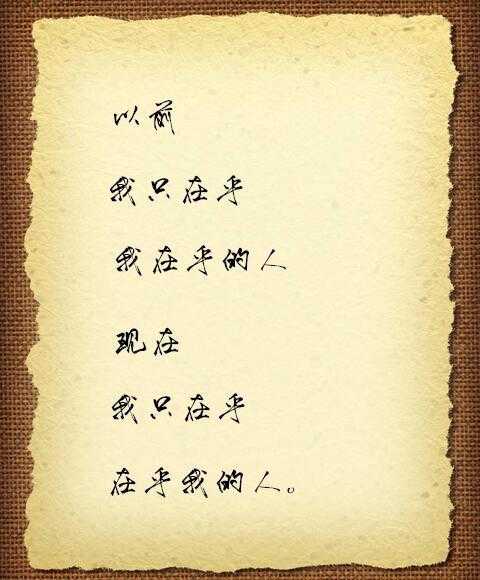 以前
我只在乎
我在乎的人
现在
我只在乎
在乎我的人。